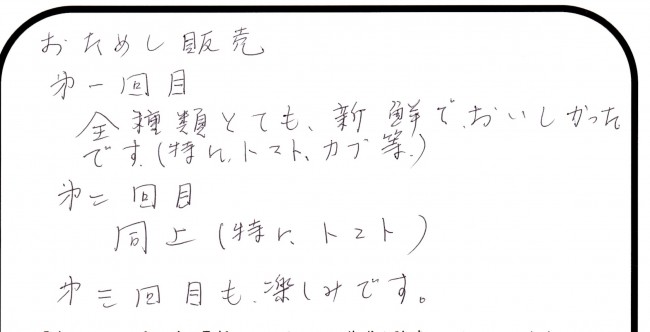 おためし販売
第一回目
全種類とても、新鮮で、おいしかった
です。(特に、トマト、カブ等。)
第二回目
同上(特に、トマト)
第三回目も、楽しみです。